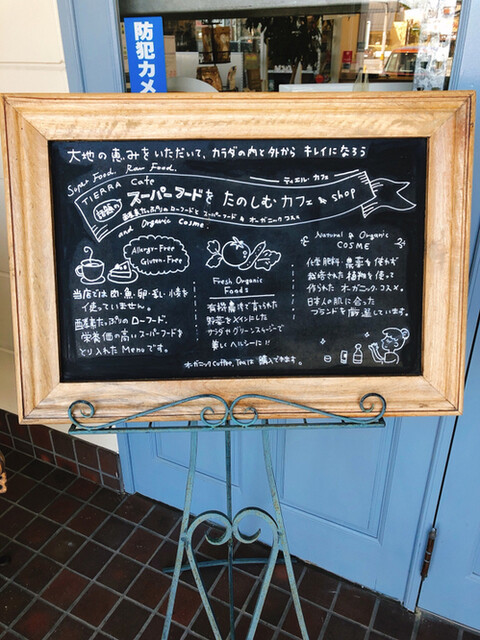 防犯カメ
大地の恵みをいただいて、カラダの内と外から キレイになろう
Super Food. Raw Food.
TIERRA Cafe
ティエラ カフェ
スーパーフードを たのしむ カフェ & shop
酵素たっぷりのローフードと スーパーフード & オーガニックコスメ
and Organic Cosme.
Allergy-Free
Gluten-Free
当店では 肉・魚・卵・白い小麦を
使っていません。
酵素たっぷりの ローフード、
栄養価の高い スーパーフードを
とり入れた Menu です。
Fresh Organic
Foods
有機農法で育られた
野菜をメインにした
サラダやグリーンスムージーで
美しくヘルシーに!!
Natural & Organic
COSME
化学肥料・農薬を使わず
栽培された 植物を使って
作られた オーガニックコスメ。
日本人の肌に合った
ブランドを 厳選しています。
オーガニックCoffee, Teaは 購入できます。